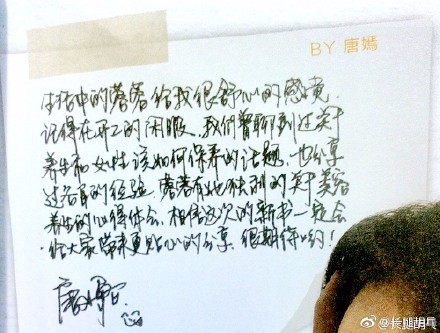 BY 唐嫣
生活中的蓉蓉给我很舒心的感觉,
记得在开工的闲暇,我们曾聊到过关于
养生和女性该如何保养的话题,也分享
过各自的经验,蓉蓉有她独到的关于美容
养生的心得体会,相信这次的新书一定会
给大家带来更贴心的分享,很期待哟!
唐嫣
@长腿胡兵